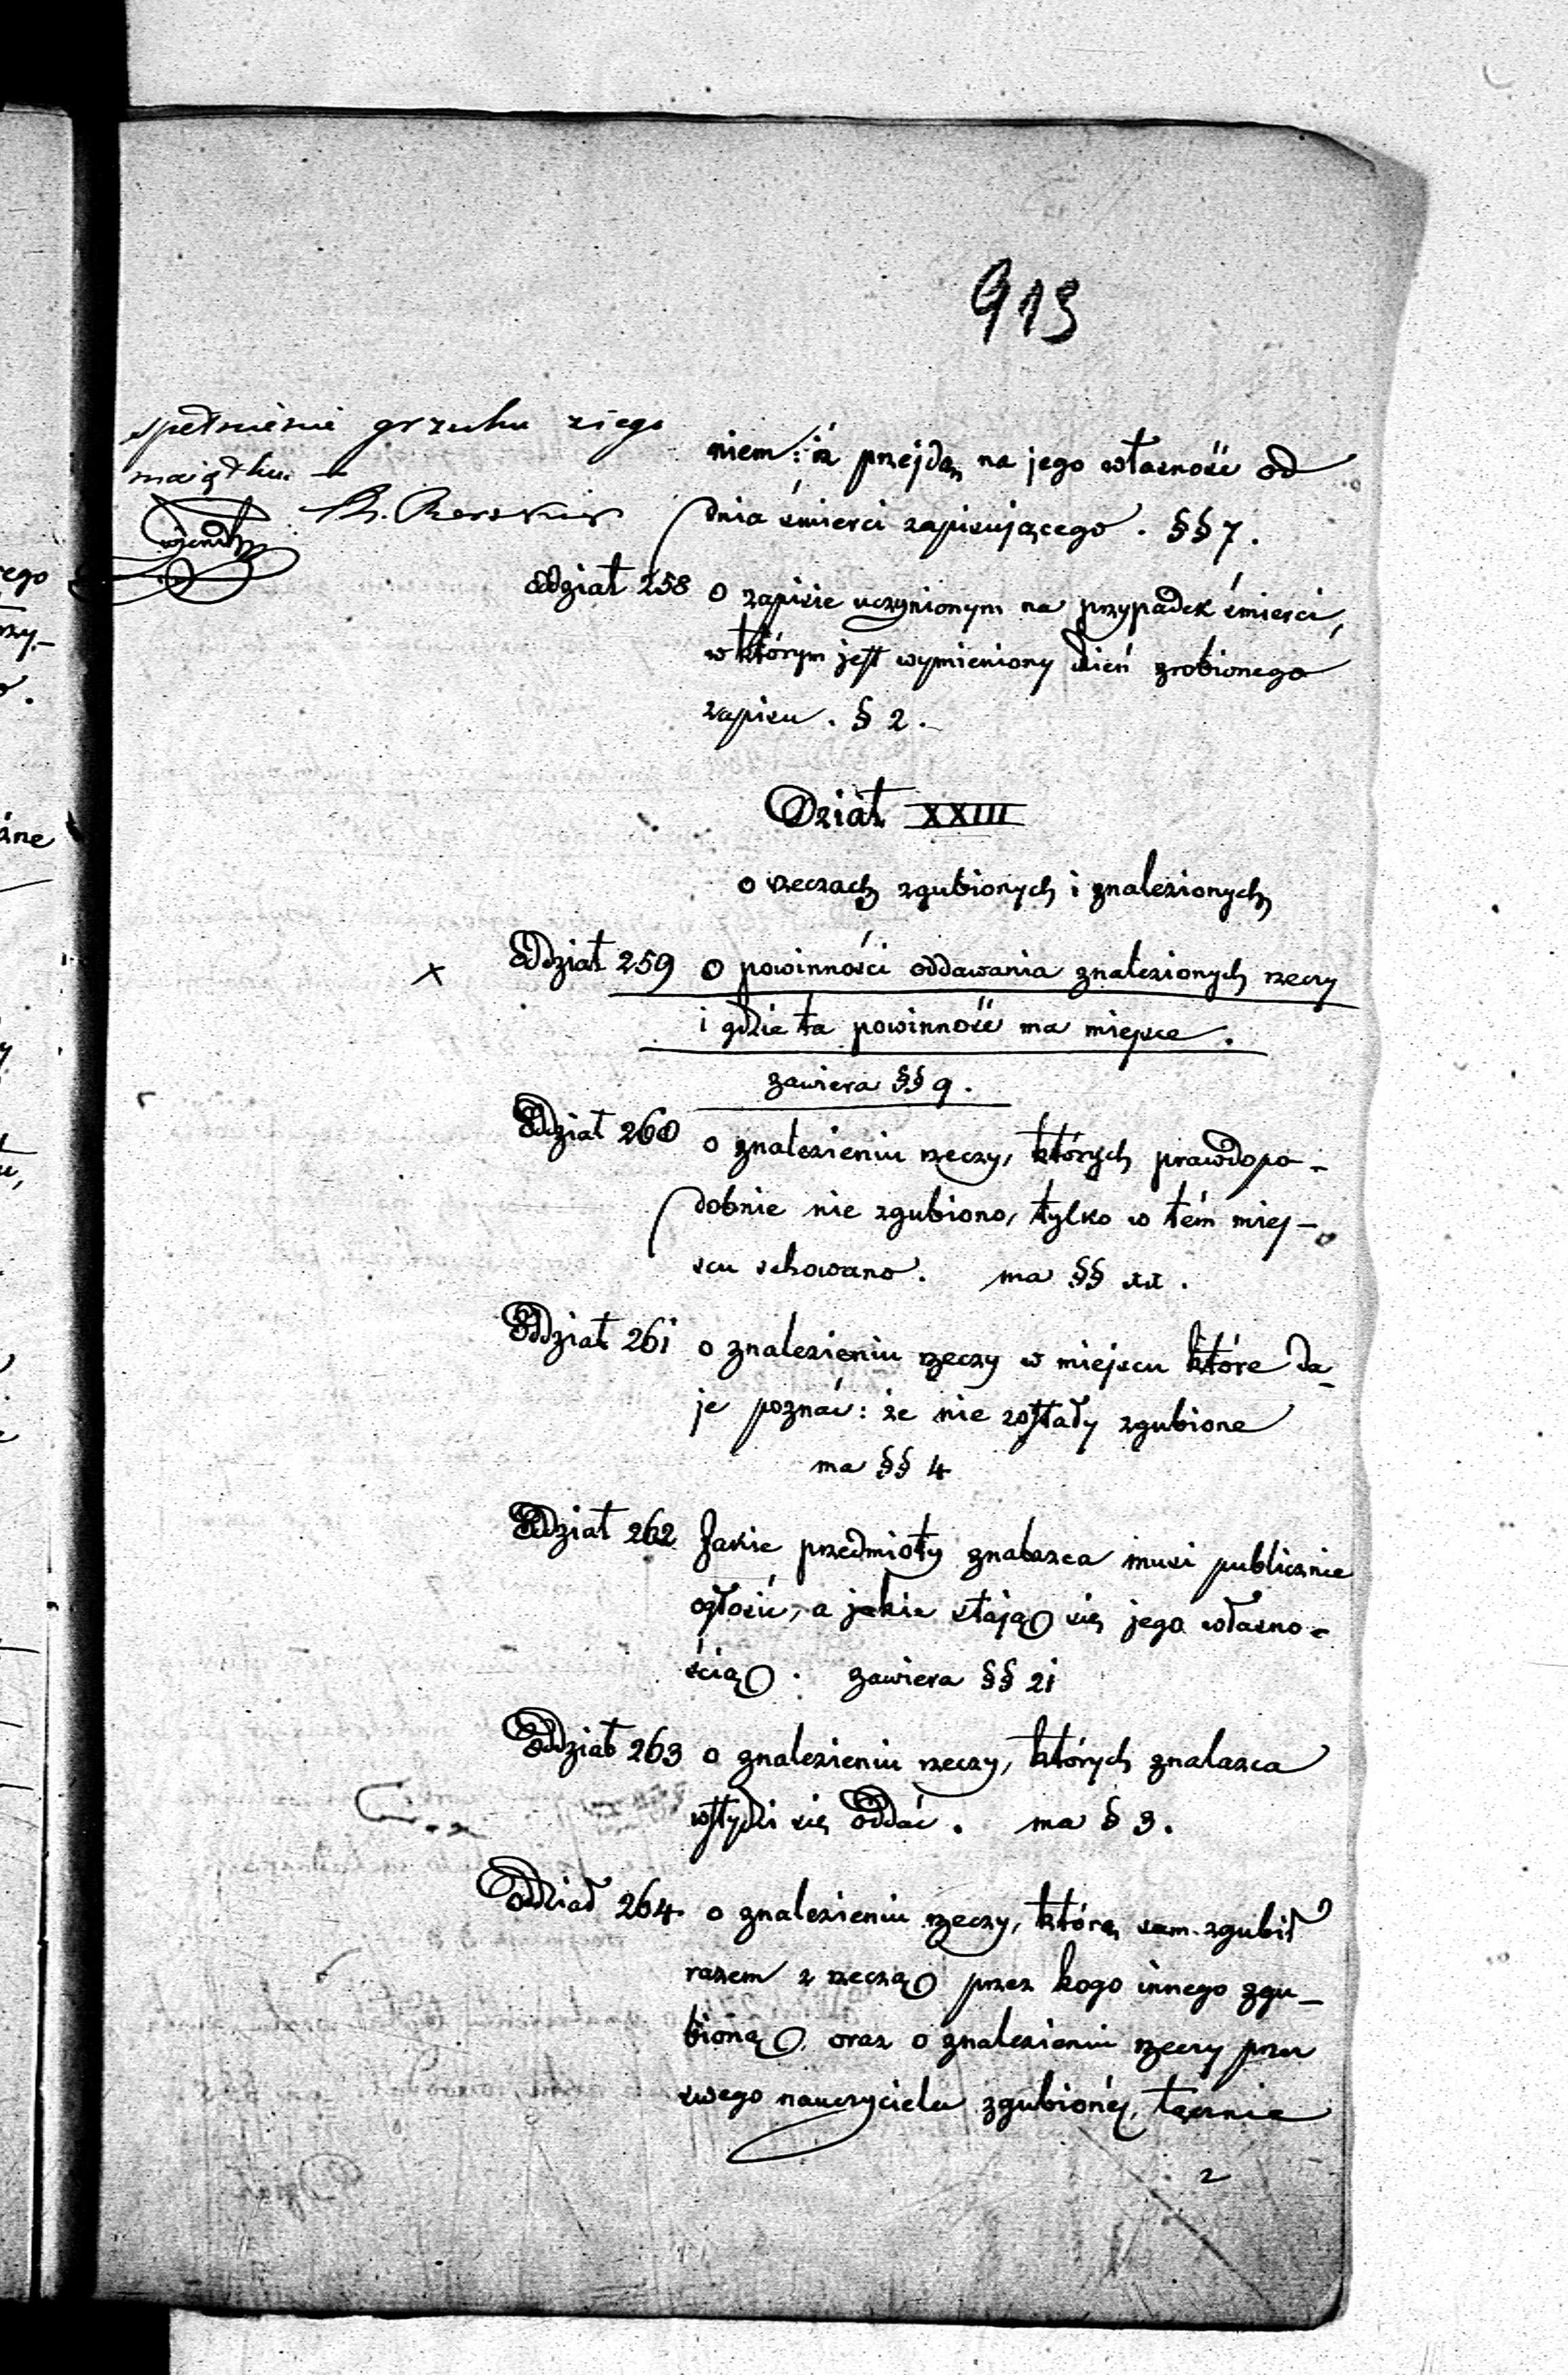 913
spełnienie grzechu ziego
majątku —
niem: iż przejdą na jego własność od
dnia śmierci zapisującego. §§ 7.
Oddział 258 o zapisie uczynionym na przypadek śmierci,
w którym jest wymieniony dzień zrobionego
zapisu. § 2.
Dział XXIII
o rzeczach zgubionych i znalezionych
x Oddział 259 o powinności oddawania znalezionych rzeczy
i gdzie ta powinność ma miejsce.
zawiera §§ 9.
Oddział 260 o znalezieniu rzeczy, których prawdopo-
dobnie nie zgubiono, tylko w tém miej-
scu schowano. ma §§
Oddział 261 o znalezieniu rzeczy w miejscu które da-
je poznać: że nie zostały zgubione
ma §§ 4
Oddział 262 Jakie przedmioty znalazca musi publicznie
ogłosić, a jakie stają się jego własno-
ścią. zawiera §§ 21
Oddział 263 o znalezieniu rzeczy, których znalazca
wstydzi się oddać. ma § 3.
Oddział 264 o znalezieniu rzeczy, którą sam zgubił
razem z rzeczą przez kogo innego zgu-
bioną oraz o znalezieniu rzeczy przez
swego nauczyciela zgubionéj, łącznie
2